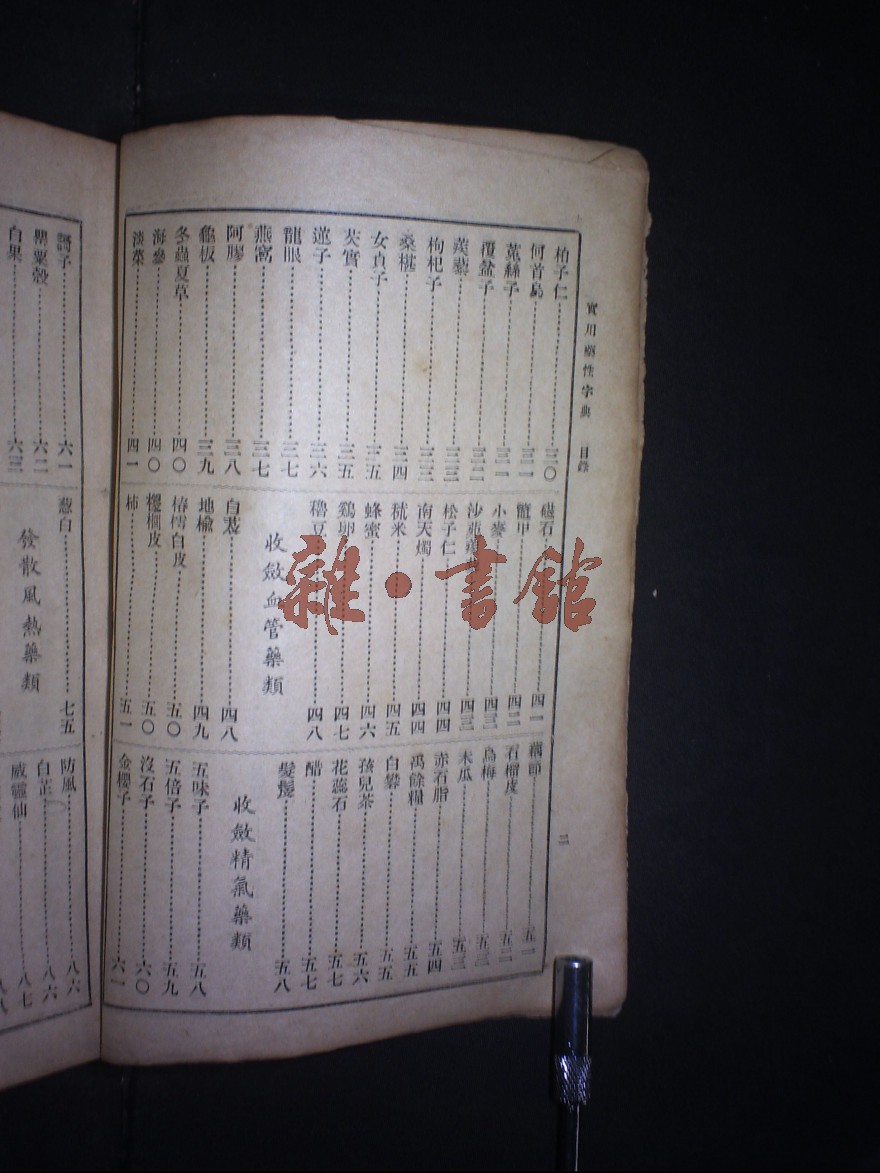 實用藥性字典 目錄
二
柏子仁 三〇
何首烏 三一
菟絲子 三二
覆盆子 三二
蒺藜 三三
枸杞子 三三
桑椹 三四
女貞子 三五
芡實 三五
蓮子 三六
龍眼 三七
燕窩 三七
阿膠 三八
龜板 三九
冬蟲夏草 四〇
海參 四〇
淡菜 四一
磁石 四一
鼈甲 四二
小麥 四三
沙苑蒺 四三
松子仁 四四
南天燭 四四
秫米 四五
蜂蜜 四六
鷄卵 四七
穭豆 四八
收斂血管藥類
白芨 四八
地榆 四九
椿樗白皮 五〇
櫻櫚皮 五〇
柿 五一
藕節 五一
石榴皮 五二
烏梅 五三
木瓜 五三
赤石脂 五四
禹餘糧 五五
白礬 五五
孩兒茶 五六
花蕊石 五七
醋 五七
髮髲 五八
收斂精氣藥類
五味子 五八
五倍子 五九
沒石子 六〇
金櫻子 六一
訶子 六一
罌粟殼 六二
白果 六三
葱白 七五
發散風熱藥類
防風 八六
白芷 八六
威靈仙 八七
雜·書館